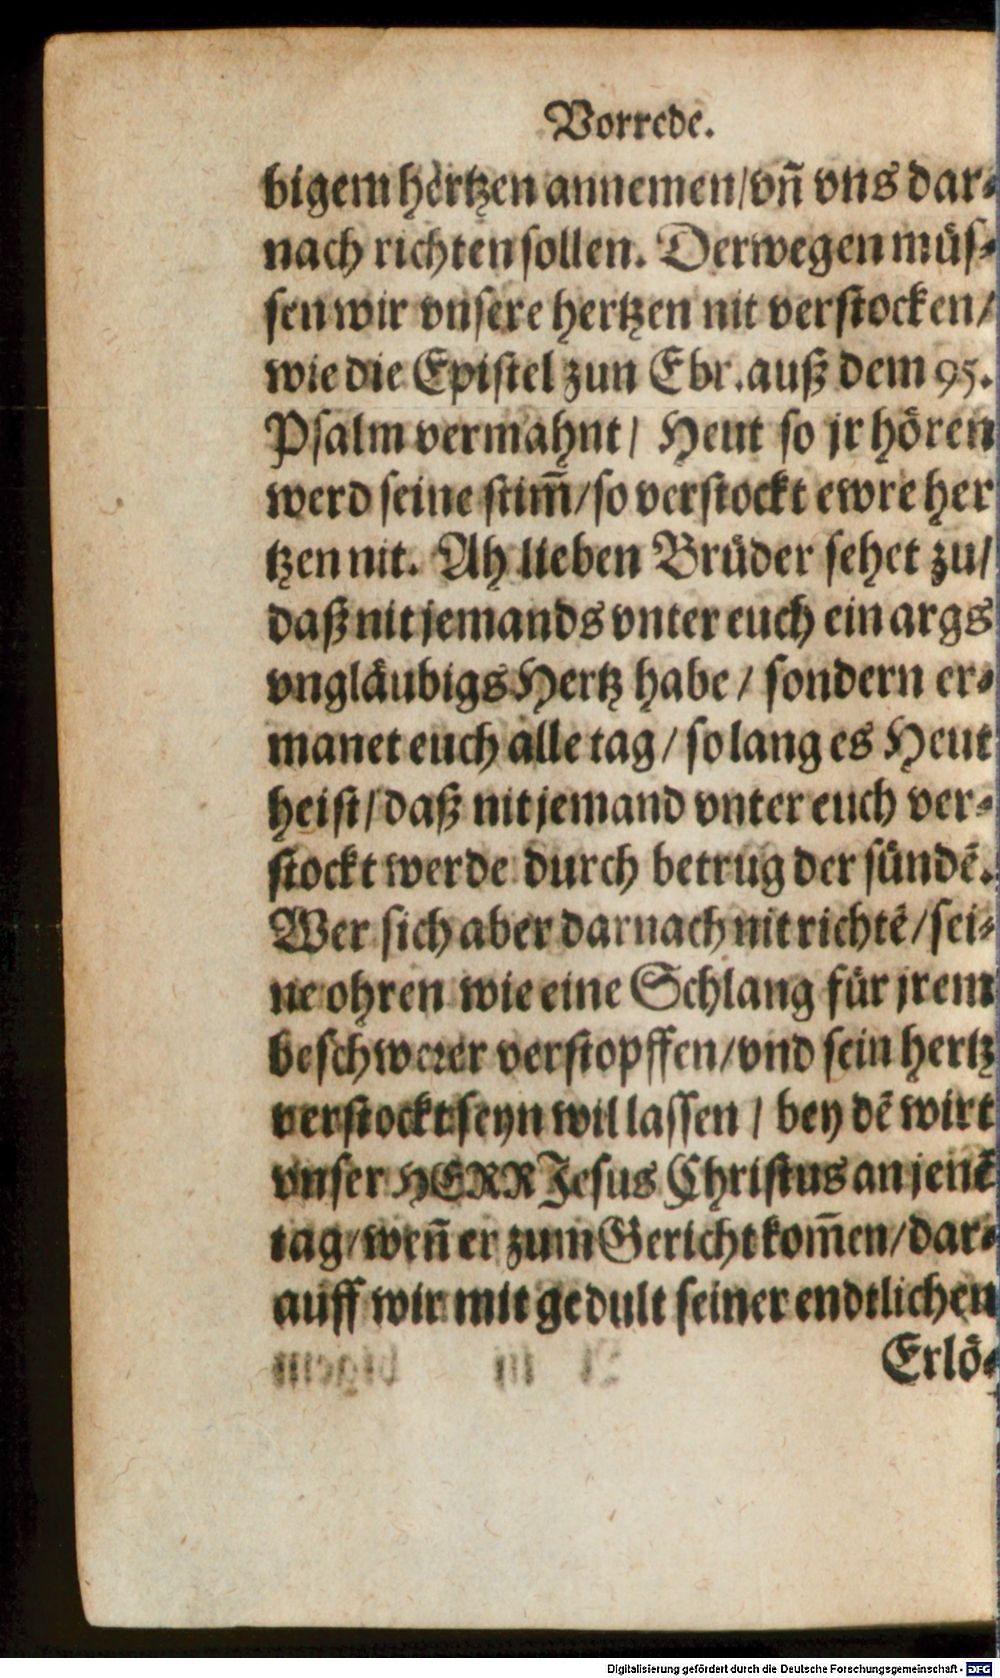 Vorrede.
bigem hertzen annemen/vñ vns dar⸗
nach richten sollen. Derwegen müs⸗
sen wir vnsere hertzen nit verstocken/
wie die Epistel zun Ebr. auß dem 95.
Psalm vermahnt/ Heut so jr hören
werd seine stim̃/so verstockt ewre her
tzen nit. Ah lieben Brüder sehet zu/
daß nit jemands vnter euch ein args
vngläubigs Hertz habe/ sondern er⸗
manet euch alle tag/ so lang es Heut
heist/daß nit jemand vnter euch ver⸗
stockt werde durch betrug der sündẽ.
Wer sich aber darnach nit richtẽ/sei⸗
ne ohren wie eine Schlang für jrem
beschwerer verstopffen/vnd sein hertz
verstockt seyn wil lassen/ bey dẽ wirt
vnser HERR Jesus Christus an jenẽ
tag/weñ er zum Gericht kom̃en/dar⸗
auff wir mit gedult seiner endtlichen
Erlö⸗
Digitalisierung gefördert durch die Deutsche Forschungsgemeinschaft - DFG